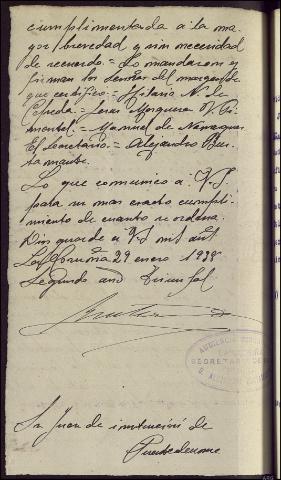 cumplimentada a la ma-
yor brevedad y sin necesidad
de recuerdo = Lo mandaron y
firman los señores del margen de
que certifico = Hilario N. de
Cepeda = Jesus Mosquera N. Pi-
mentel = Manuel de
El secretario = Alejandro Bus-
tamante.
Lo que comunico a V.S.
para su mas exacto cumpli-
miento de cuanto se ordena.
Dios guarde a V.S. mil años
La Coruña 29 enero 1938
Segundo año Triunfal
AUDIENCIA
SECRETARIA DE
Sr Juez de instrucción de
Puentedeume